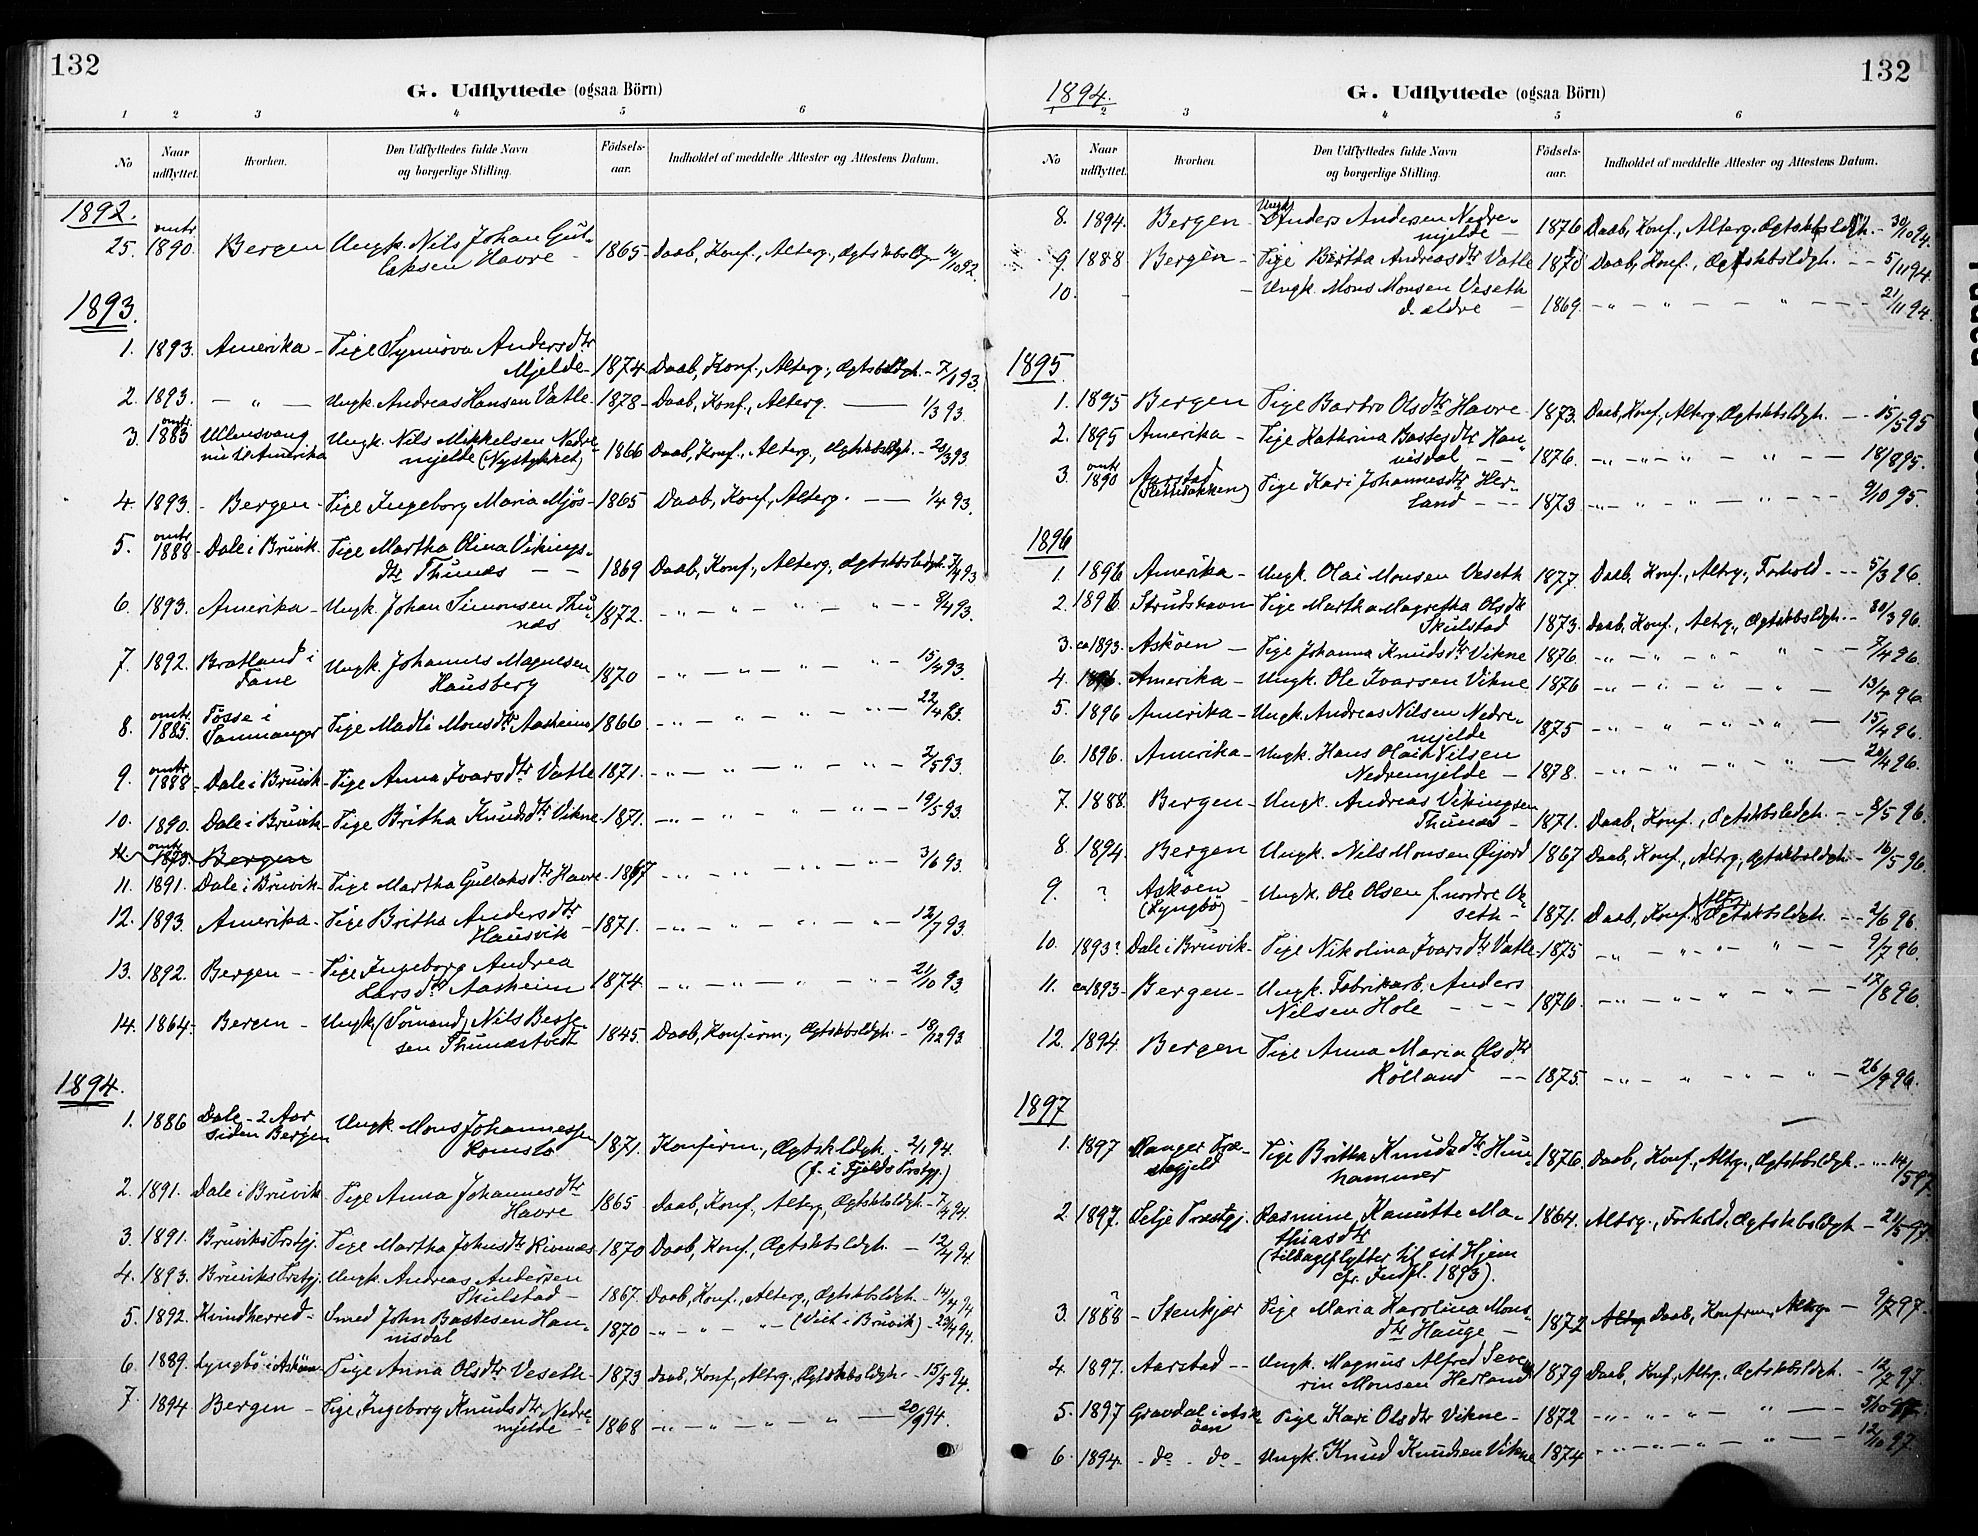 132
G. Udflyttede (ogsaa Börn)
1 2 3 4 5 6
No Naar udflyttet. Hvorhen. Den Udflyttedes fulde Navn og borgerlige Stilling. Födsels-aar. Indholdet af meddelte Attester og Attestens Datum.
1892.
25. omtr. 1890. Bergen Ungk. Nils Johan Gul-
laksen Havre - 1865 - Daab, Konf., Alterg., Ægtskbsldgh. 14/10 92.
1893.
1. 1893. Amerika - Pige Synnöva Andersdtr
Mjelde - 1874 Daab, Konf., Alterg., Ægtskbsldgh. - 7/1 93.
2. 1893. - " - Ungk. Andreas Hansen Vatle - 1878 - Daab, Konf., Alterg. - 1/3 93.
3. omtr. 1883 Ullensvang Ungk. Nils Mikkelsen Nedre-
nu til Amerika mjelde (Nystykket) 1866 Daab, Konf., Alterg., Ægtskbsldgh. - 25/3 93.
4. 1893. - Bergen - Pige Ingeborg Maria Mjös - 1865 Daab, Konf., Alterg. - 1/4 93.
5. omtr. 1888 - Dale i Bruvik. Pige Martha Olina Vikings-
dtr Thunæs - - 1869 Daab, Konf., Alterg., Ægtskbsldgh. 7/4 93.
6. 1893. Amerika - Ungk. Johan Simonsen Thu-
næs 1872. - " - " - " - " - 8/4 93.
7. 1892. Bratland i Ungk. Johannes Magnesen
Hausberg 1870 - " - " - " - " - 15/4 93.
8. omtr. 1885. Tösse i
Sammanger Pige Madli Monsdtr Aasheim 1866 - " - " - " - " - 22/4 93.
9. omtr. 1888 - Dale i Bruvik - Pige Anna Ivarsdtr Vatle 1871. - " - " - " - " - 2/5 93.
10. 1890. Dale i Bruvik - Pige Britha Knudsdtr Vikne - 1871. - " - " - " - " - 19/5 93.
11. omtr. 1873. Bergen
11. 1891. Dale i Bruvik - Pige Martha Gullaksdtr Havre - 1867 - " - " - " - " - 3/6 93.
12. 1893. Amerika - Pige Britha Andersdtr
Hausvik - 1871. - " - " - " - " - 12/7 93.
13. 1892. Bergen - - Pige Ingeborg Andrea
Larsdtr Aasheim 1874. - " - " - " - " - 21/10 93.
14. 1864. Bergen - Ungk. (Sömand) Nils Besse-
sen Thunæstvedt 1845. Daab, Konfirm., Ægtskbsldgh. - 18/12 93.
1894.
1. 1886 Dale - 2 Aar
siden Bergen Ungk. Mons Johannessen
Romslo 1871. Konfirm., Ægtskldgh. - 2/1 94.
(f. i Fjelds Prstgj.)
2. 1891. Dale i Bruvik Pige Anna Johannesdtr
Havre 1865 Daab, Konf., Alterg., Ægtskbsldgh. - 7/4 94.
3. 1891. Bruviks Prstgj. Pige Martha Johnsdtr Rivenæs 1870 Daab, Konf., Ægtskbsldgh. - 12/4 94.
4. 1893. Bruviks Prstgj. Ungk. Andreas Andersen
Skulstad - 1867. Daab, Konf., Alterg., Ægtskbsldgh. - 14/4 94
5. 1892. Kvindherred - Smed John Bastesen Han-
nisdal 1870 - " - " - " - (Viet i Bruvik) - 23/4 94.
6. 1889. Lyngbö i Asköen - Pige Anna Olsdtr Veseth - 1873 Daab, Konf., Altrg., Ægtskbsldgh. - 15/5 94.
7. 1894 Bergen - Pige Ingeborg Knudsdtr Nedre-
mjelde - 1868 - " - " - " - " - 20/9 94.
132
1894.
G. Udflyttede (ogsaa Börn)
1 2 3 4 5 6
No Naar udflyttet. Hvorhen Den Udflyttedes fulde Navn og borgerlige Stilling. Födsels-aar. Indholdet af meddelte Attester og Attestens Datum.
8. 1894. Bergen - Ungk. Anders Andersen Nedre-
mjelde - 1876 Daab, Konf., Alterg., Ægtskbsldgh. - 30/10 94.
9. 1888 Bergen - Pige Britha Andreasdtr Vatle 1870 Daab, Konf., Ægtskbsldgh. - - 5/11 94.
10. - - Ungk. Mons Monsen Veseth
d. ældre - 1869. - " - " - " - " - 21/11 94.
1895
1. 1895 Bergen Pige Barbro Olsdtr Havre - 1873. Daab, Konf., Alterg., Ægtskbsldgh. - - 15/5 95
2. 1895 Amerika - Pige Kathrina Bastesdtr Han-
nisdal - - 1876. - " - " - " - " - 18/8 95.
3. omtr. 1890 Aarstad
(Slettebakken) Pige Kari Johannesdtr Her-
land - - - 1873 - " - " - " - " - 9/10 95.
1896
1. 1896 Amerika - Ungk. Olai Monsen Veseth 1877. Daab, Konf., Altrg., Forhold - - - 5/3 96.
2. 1896. Strudshavn Pige Martha Magretha Olsdtr
Skulstad 1873. Daab, Konf., Altrg., Ægtskbsldgh. - - 30/3 96.
3. ca 1893. Asköen - Pige Johanna Knudsdtr Vikne 1876. - " - " - " - " - 7/4 96.
4. 1896. Amerika - Ungk. Ole Ivarsen Vikne 1876 - " - " - " - " - 13/4 96.
5. 1896 Amerika - Ungk. Andreas Nilsen Nedre-
mjelde 1875 - " - " - " - " - 15/4 96.
6. 1896. Amerika - Ungk. Hans Olai Nilsen
Nedremjelde - 1878. - " - " - " - " - 20/4 96.
7. 1888. Bergen - Ungk. Andreas Vikingsen
Thunæs - 1871. Daab, Konf., Ægtskbsldgh. - - 8/5 96.
8. 1894. Bergen Ungk. Nils Monsen Öijord 1867 Daab, Konf., Altrg., Ægtskbsldgh. - 16/5 96.
9. ? Asköen
(Lyngbö) - Ungk. Ole Olsen f. nordre Ve-
seth - 1871. Daab, Konf., Altrg. Ægtskbsldgh. - - 2/6 96.
10. 1893? Dale i Bruvik - Pige Nikolina Ivarsdtr Vatle - 1875 - " - " - " - " - 9/7 96.
11. ca 1893 - Bergen - Ungk. Fabrikarb. Anders
Nilsen Hole - - - 1876. - " - " - " - " - 17/8 96.
12. 1894. Bergen Pige Anna Maria Olsdtr
Rölland - - 1875. - " - " - " - " - 26/9 96.
1897
1. 1897 Manger Præ-
stegjeld Pige Britha Knudsdtr Hun-
hammer 1876. Daab, Konf., Altrg., Ægtskbsldgh. - - 14/5 97.
2. 1897. Selje Præstgj. Rasmine Kanutte Ma-
thiasdtr
(tilbageflytter til sit Hjem
cfr. Indfl. 1893). 1864. Altrg., Forhold, Ægtskbsldgh. - 21/5 97.
3. ? 1888 - Stenkjær Pige Maria Karolina Mons-
dtr Hauge - 1872 Altrg Daab, Konfrm., Altrg. - 9/7 97.
4. 1897. Aarstad - - Ungk. Magnus Alfred Seve-
rin Monsen Herland 1879 Daab, Konf., Altrg., Ægtskbsldgh. - 12/7 97.
5. 1897 Gravdal i Ask-
öen Pige Kari Olsdtr Vikne - 1872 - " - " - " - " - 5/10 97.
6. 1894. - do - do - Ungk. Knud Knudsen Vikne 1874 - " - " - " - " - 12/10 97.